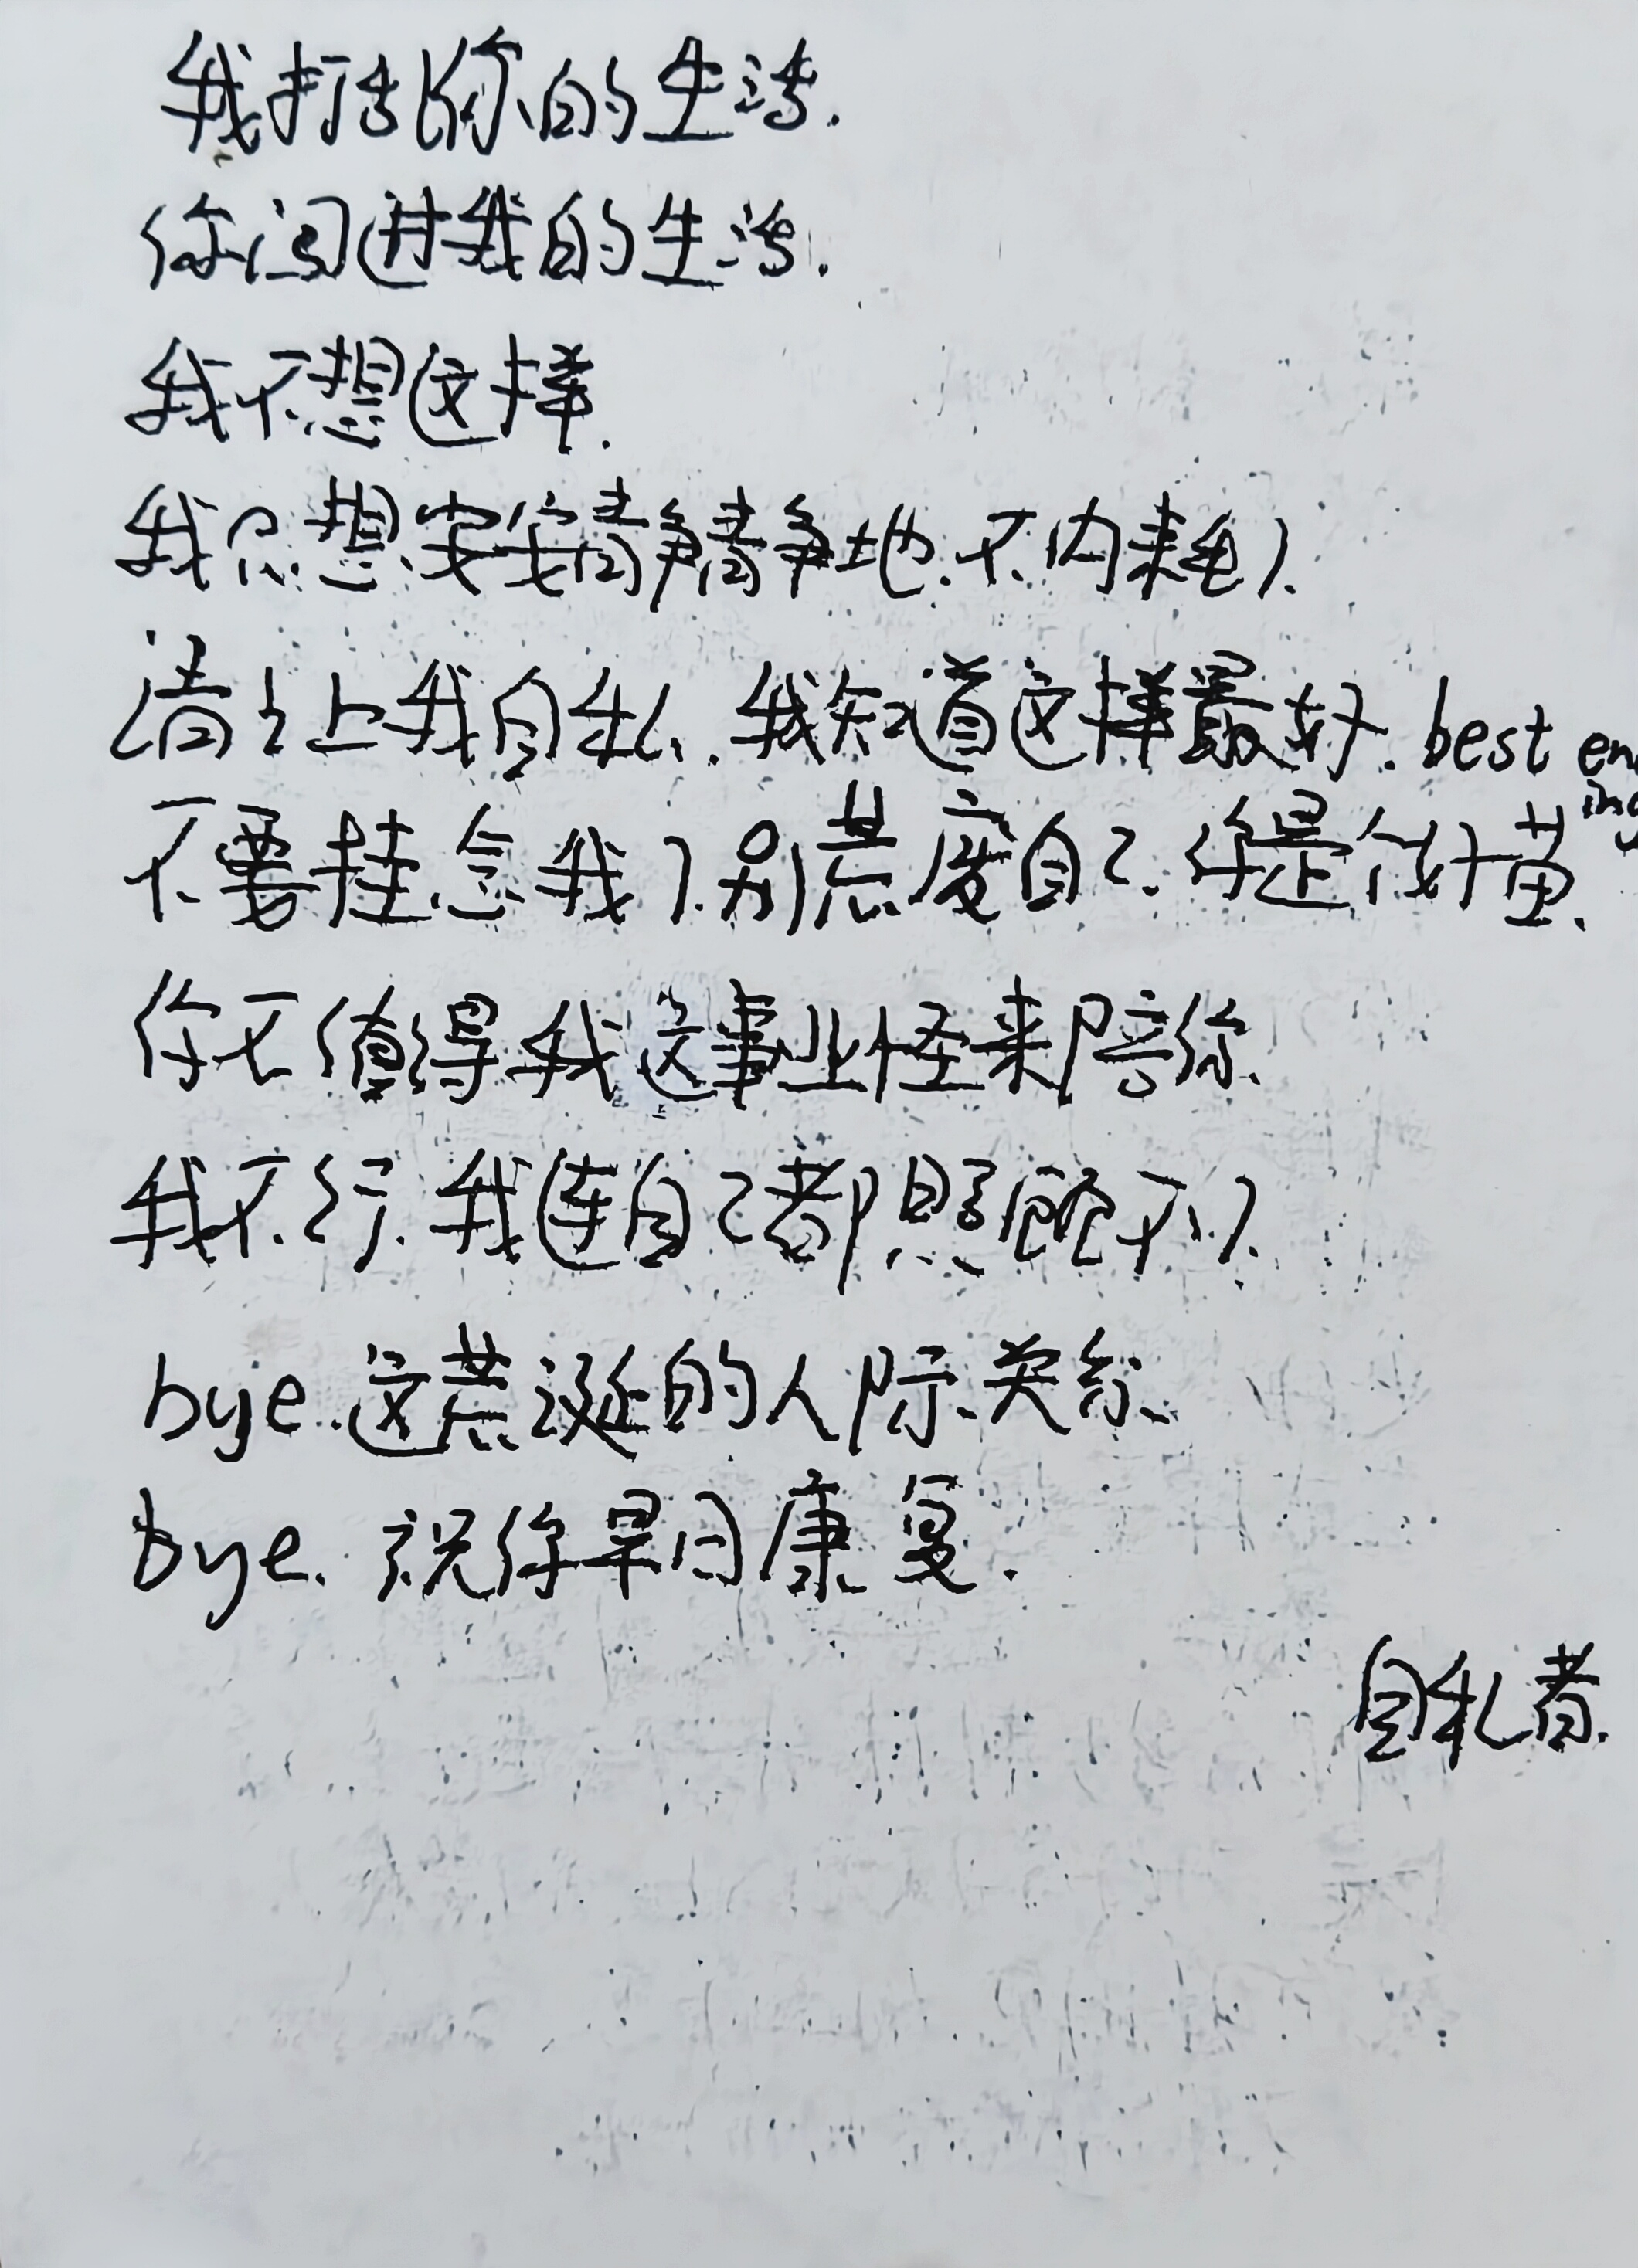 我打扰你的生活.
你闯进我的生活.
我不想这样.
我只想安安静静地.不内耗了.
请让我自私.我知道这样最好.best ending
不要挂念我了.别荒废自己.你是个好苗.
你不值得我这事业怪来陪你.
我不行.我连自己都照顾不了.
bye.这荒诞的人际关系.
bye.祝你早日康复.
自私者.